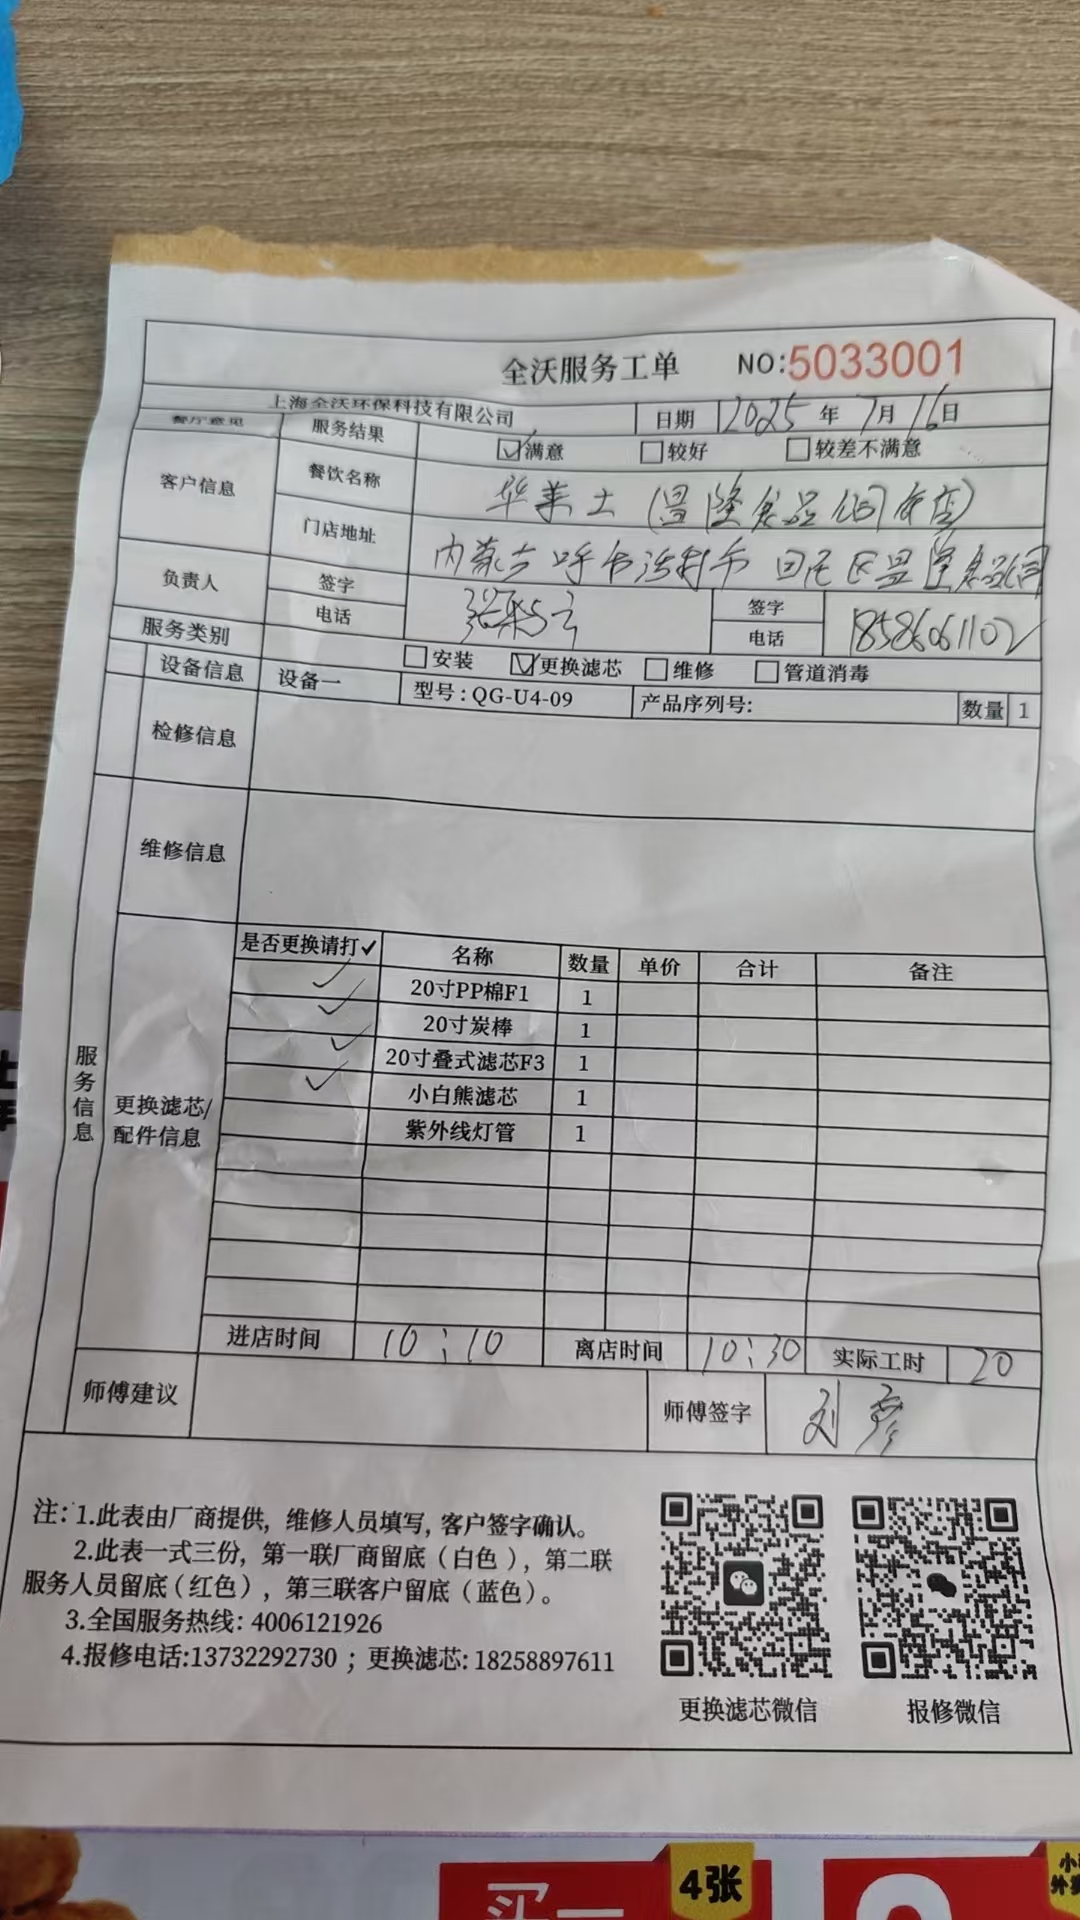 全沃服务工单 NO:5033001
上海全沃环保科技有限公司 日期 2025年7月16日
餐厅意见 服务结果 ☑满意 □较好 □较差不满意
客户信息 餐饮名称 华莱士(昌隆食品公司店)
门店地址 内蒙古呼和浩特市回民区昌隆食品公司
负责人 签字 签字
电话 电话 18586061102
服务类别 □安装 ☑更换滤芯 □维修 □管道消毒
设备信息 设备一 型号:QG-U4-09 产品序列号: 数量 1
检修信息
维修信息
服务信息
更换滤芯/配件信息
是否更换请打✓ 名称 数量 单价 合计 备注
✓ 20寸PP棉F1 1
✓ 20寸炭棒 1
✓ 20寸叠式滤芯F3 1
✓ 小白熊滤芯 1
紫外线灯管 1
进店时间 10:10 离店时间 10:30 实际工时 20
师傅建议 师傅签字 刘彦
注:1.此表由厂商提供,维修人员填写,客户签字确认。
2.此表一式三份,第一联厂商留底(白色),第二联
服务人员留底(红色),第三联客户留底(蓝色)。
3.全国服务热线:4006121926
4.报修电话:13732292730;更换滤芯:18258897611
更换滤芯微信 报修微信
4张
买一